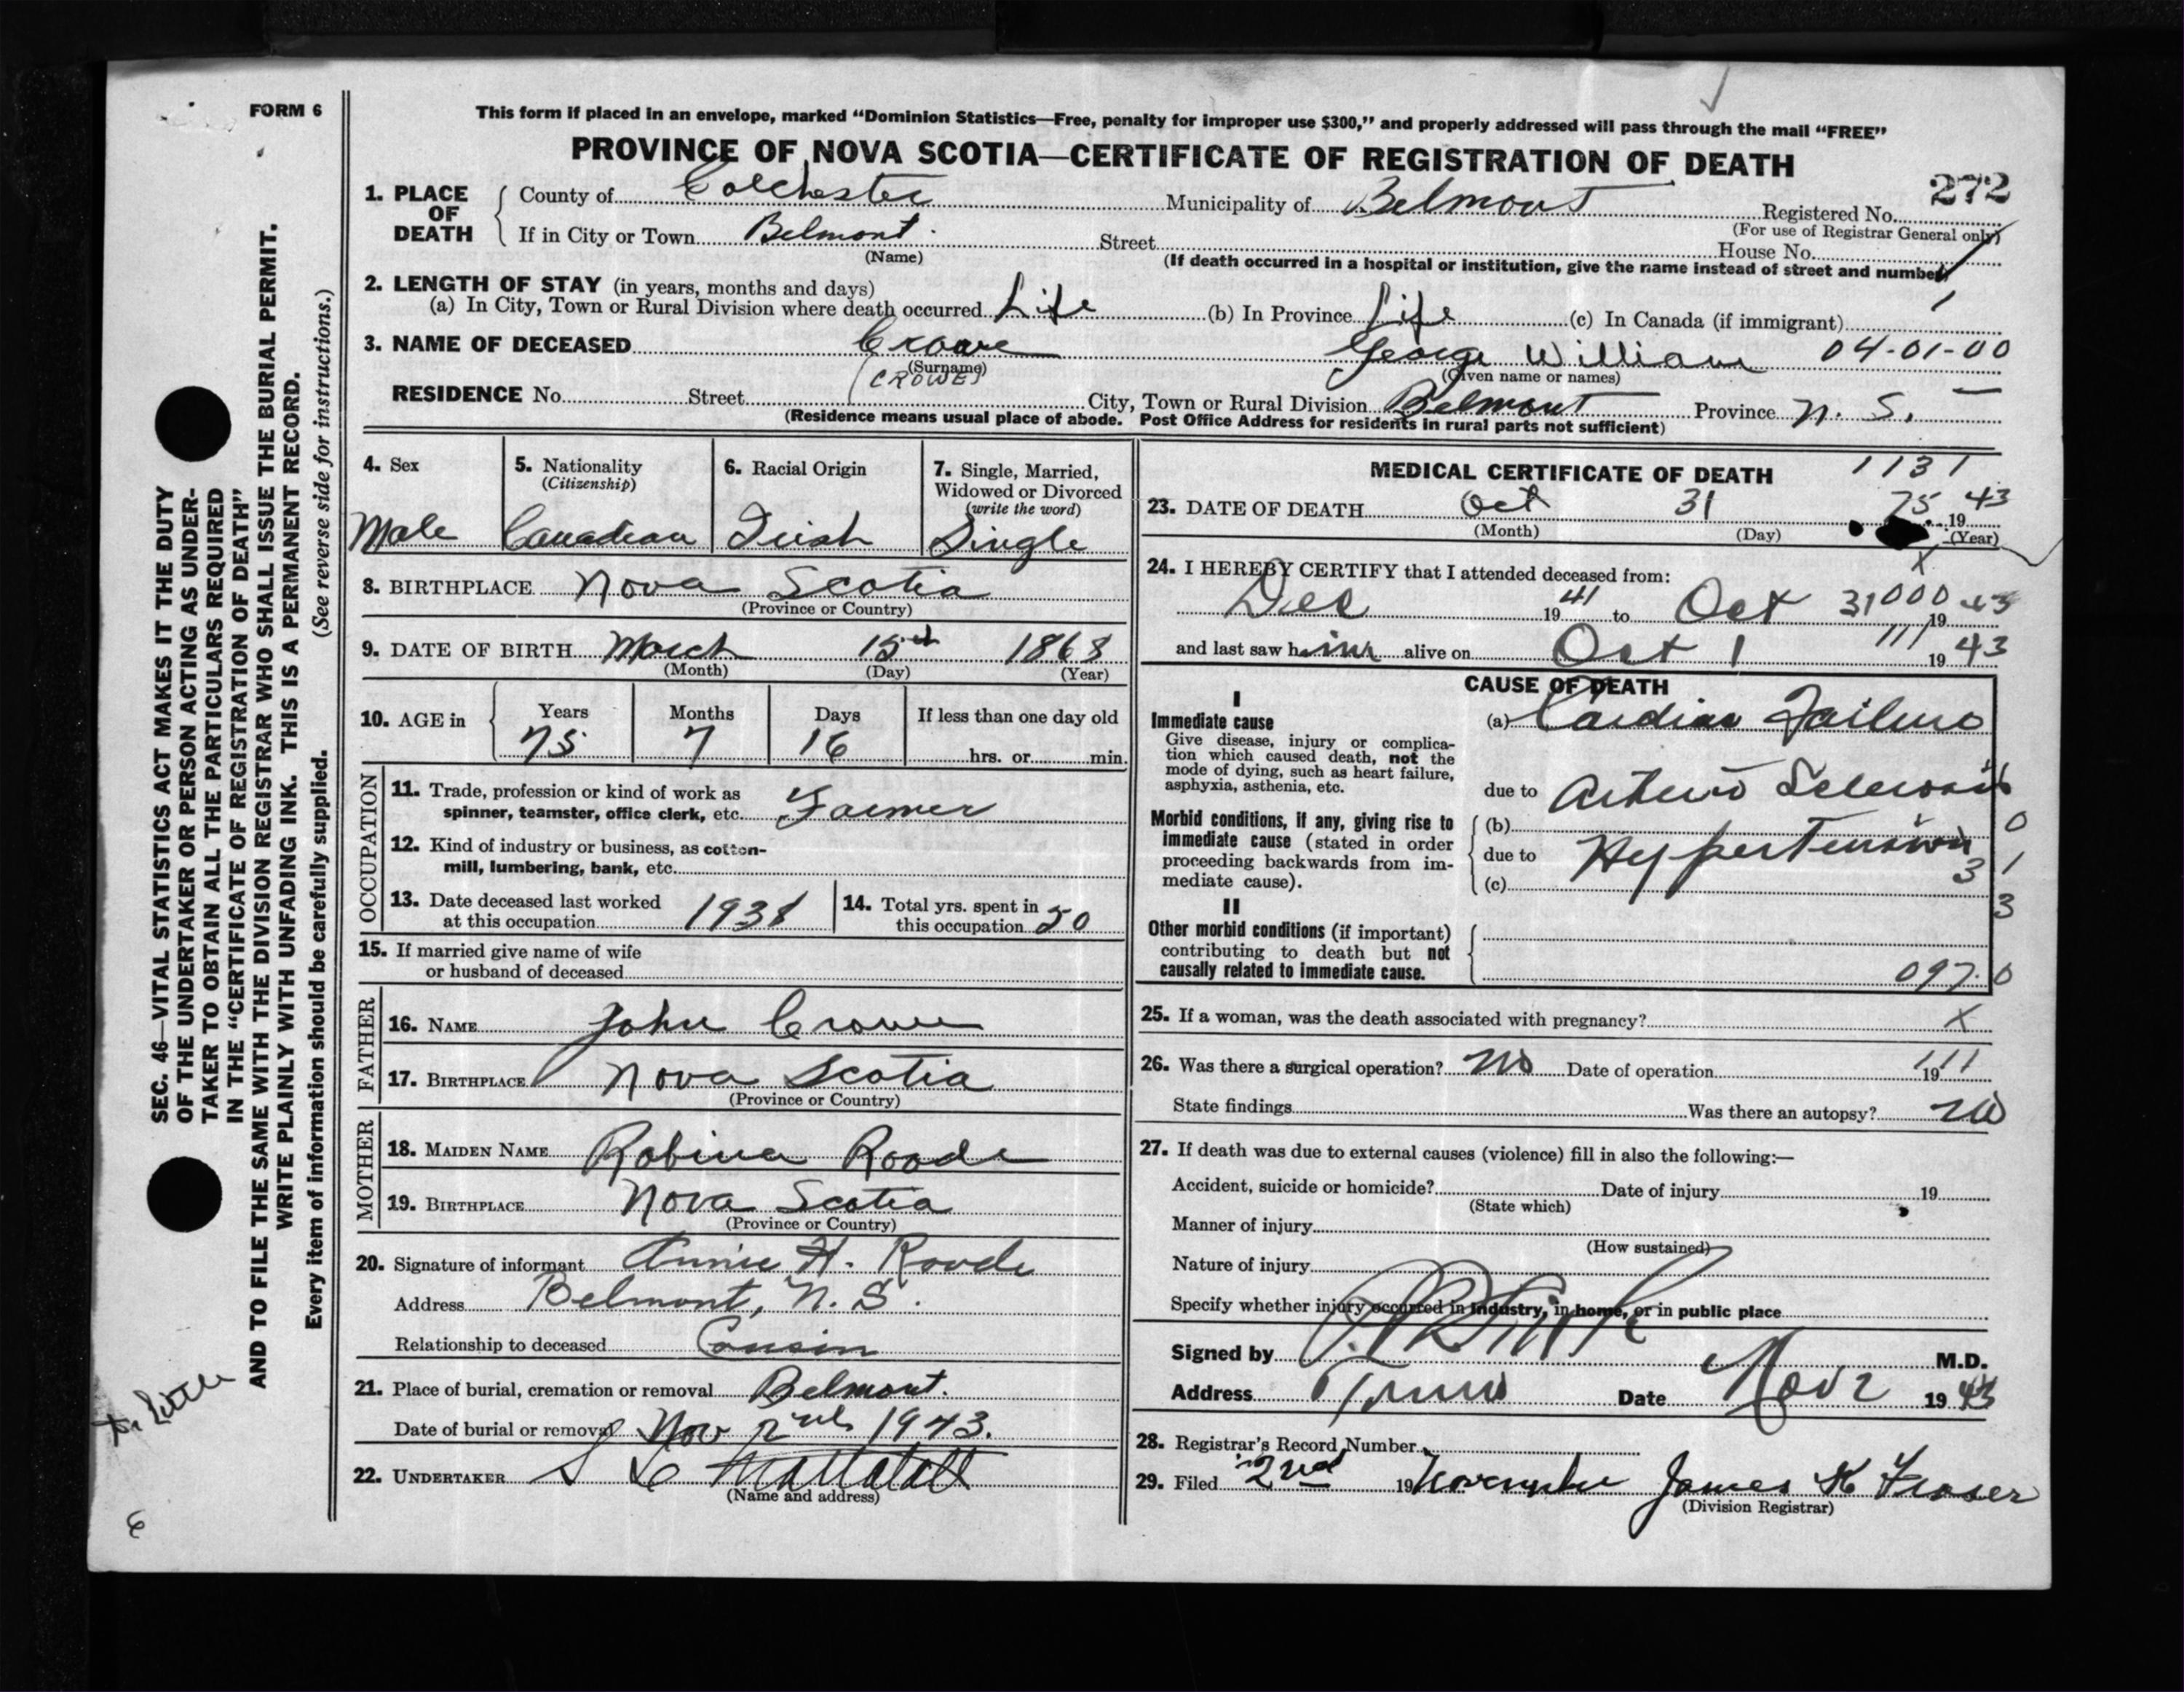 FORM 6
This form if placed in an envelope, marked "Dominion Statistics—Free, penalty for improper use $300," and properly addressed will pass through the mail "FREE"
PROVINCE OF NOVA SCOTIA—CERTIFICATE OF REGISTRATION OF DEATH
272
1. PLACE OF DEATH County of Colchester Municipality of Belmont Registered No.
(For use of Registrar General only)
If in City or Town Belmont. Street House No.
(Name) (If death occurred in a hospital or institution, give the name instead of street and number)
2. LENGTH OF STAY (in years, months and days)
(a) In City, Town or Rural Division where death occurred Life (b) In Province Life (c) In Canada (if immigrant)
3. NAME OF DECEASED Crowe George William 04-01-00
(Surname) (Given name or names)
(CROWE)
RESIDENCE No. Street City, Town or Rural Division Belmont Province N. S.
(Residence means usual place of abode. Post Office Address for residents in rural parts not sufficient)
4. Sex Male
5. Nationality (Citizenship) Canadian
6. Racial Origin Irish
7. Single, Married, Widowed or Divorced (write the word) Single
8. BIRTHPLACE Nova Scotia
(Province or Country)
9. DATE OF BIRTH March 15th 1868
(Month) (Day) (Year)
10. AGE in Years Months Days If less than one day old
75 7 16 hrs. or min.
OCCUPATION
11. Trade, profession or kind of work as
spinner, teamster, office clerk, etc. Farmer
12. Kind of industry or business, as cotton-
mill, lumbering, bank, etc.
13. Date deceased last worked at this occupation 1938
14. Total yrs. spent in this occupation 50
15. If married give name of wife
or husband of deceased
FATHER
16. NAME John Crowe
17. BIRTHPLACE Nova Scotia
(Province or Country)
MOTHER
18. MAIDEN NAME Robina Roode
19. BIRTHPLACE Nova Scotia
(Province or Country)
20. Signature of informant Annie H. Roode
Address Belmont, N. S.
Relationship to deceased Cousin
21. Place of burial, cremation or removal Belmont.
Date of burial or removal Nov 2nd 1943.
22. UNDERTAKER S C Mattatall
(Name and address)
MEDICAL CERTIFICATE OF DEATH 1131
23. DATE OF DEATH Oct 31 75 1943
(Month) (Day) (Year)
X
24. I HEREBY CERTIFY that I attended deceased from:
Dec 1941 to Oct 31 000 1943
and last saw him alive on Oct 1 111 1943
CAUSE OF DEATH
I
Immediate cause (a) Cardiac Failure
Give disease, injury or complica-
tion which caused death, not the
mode of dying, such as heart failure,
asphyxia, asthenia, etc.
due to Arterio Sclerosis
Morbid conditions, if any, giving rise to
immediate cause (stated in order
proceeding backwards from im-
mediate cause).
(b) 0
due to Hypertension 3 1
(c)
3
II
Other morbid conditions (if important)
contributing to death but not
causally related to immediate cause.
097.0
25. If a woman, was the death associated with pregnancy? X
26. Was there a surgical operation? No Date of operation 19 111
State findings Was there an autopsy? No
27. If death was due to external causes (violence) fill in also the following:—
Accident, suicide or homicide? Date of injury 19
(State which)
Manner of injury
(How sustained)
Nature of injury
Specify whether injury occurred in industry, in home, or in public place
Signed by M.D.
Address Truro Date Nov 2 1943
28. Registrar's Record Number
29. Filed 2nd 19 November James K Fraser
(Division Registrar)
SEC. 46—VITAL STATISTICS ACT MAKES IT THE DUTY
OF THE UNDERTAKER OR PERSON ACTING AS UNDER-
TAKER TO OBTAIN ALL THE PARTICULARS REQUIRED
IN THE "CERTIFICATE OF REGISTRATION OF DEATH"
AND TO FILE THE SAME WITH THE DIVISION REGISTRAR WHO SHALL ISSUE THE BURIAL PERMIT.
WRITE PLAINLY WITH UNFADING INK. THIS IS A PERMANENT RECORD.
Every item of information should be carefully supplied. (See reverse side for instructions.)
6